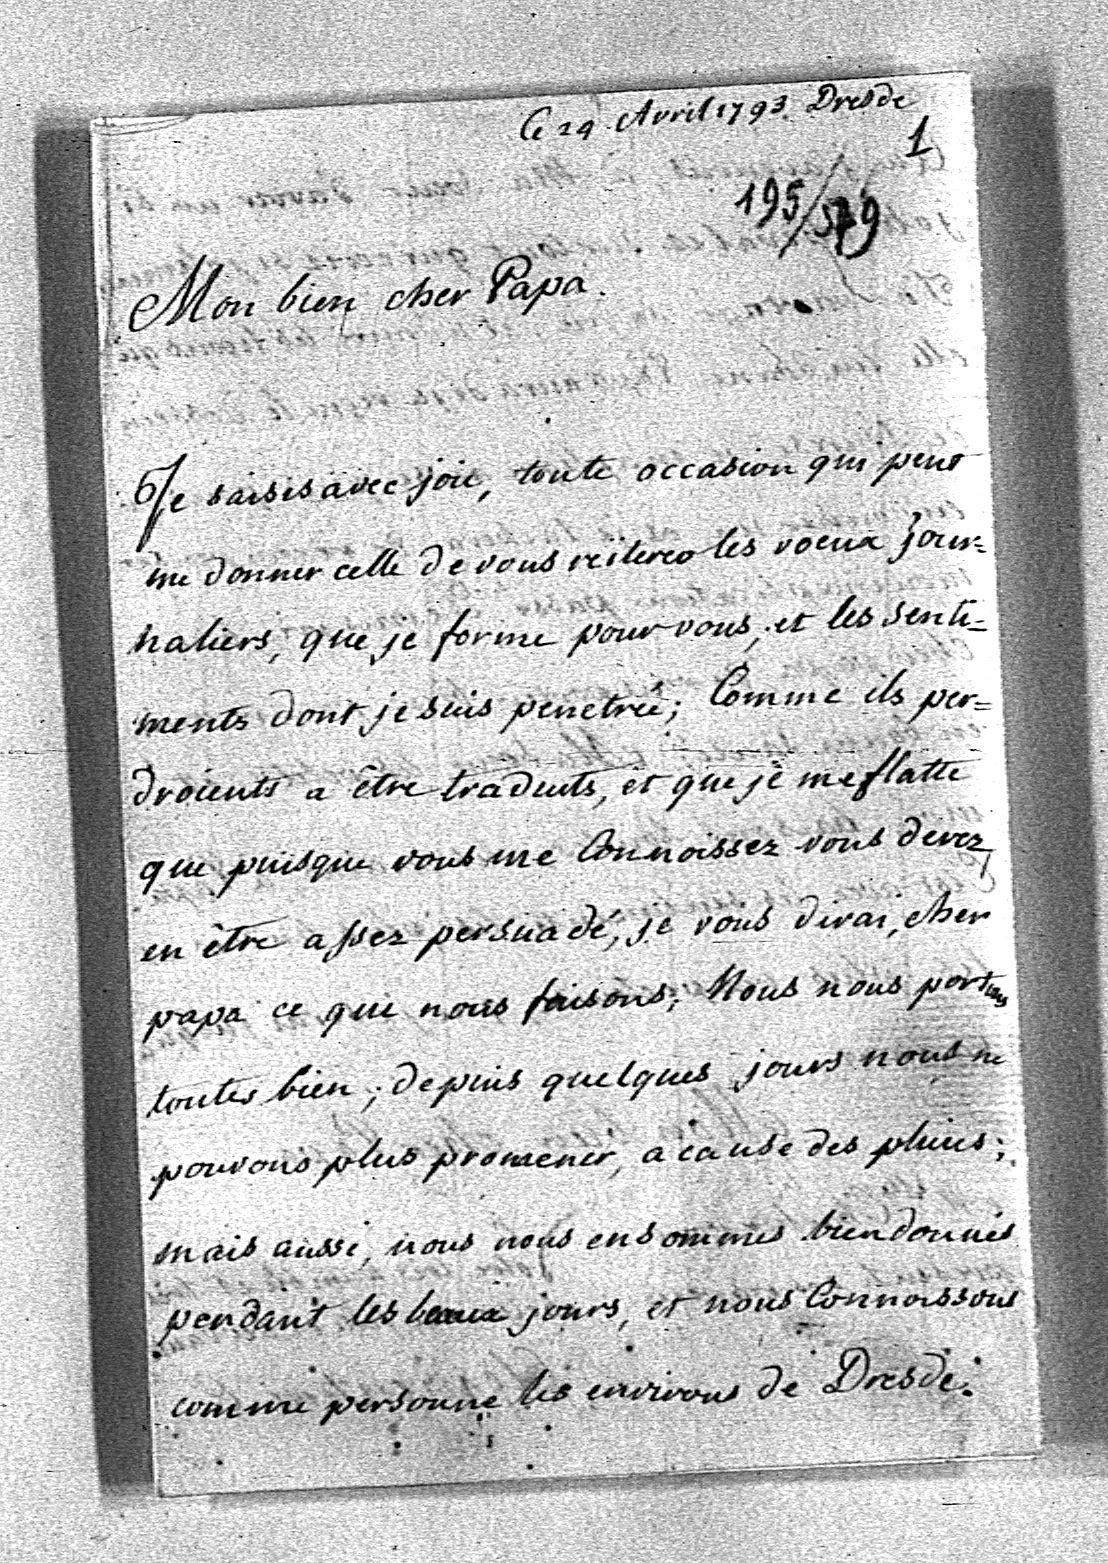 Ce 29 Avril 1793. Dresde
1
195/579
Mon bien cher Papa.
Je saisis avec joie, toute occasion qui peut
me donner celle de vous reiterer les voeux jour=
naliers, que je forme pour vous, et les senti=
ments dont je suis penetrée; Comme ils per=
droients a être traduits, et que je me flatte
que puisque vous me Connoissez vous devez
en être assez persuadé, je vous dirai, cher
papa ce que nous faisons; Nous nous portons
toutes bien; depuis quelques jours nous ne
pouvons plus promener, a cause des pluies;
mais aussi, nous nous en sommes bien donnés
pendant les beaux jours, et nous Connoissons
comme personne les environs de Dresde.